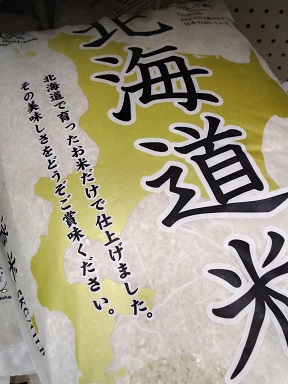 北海道米
北海道で育ったお米だけで仕上げました。
その美味しさをどうぞご賞味ください。